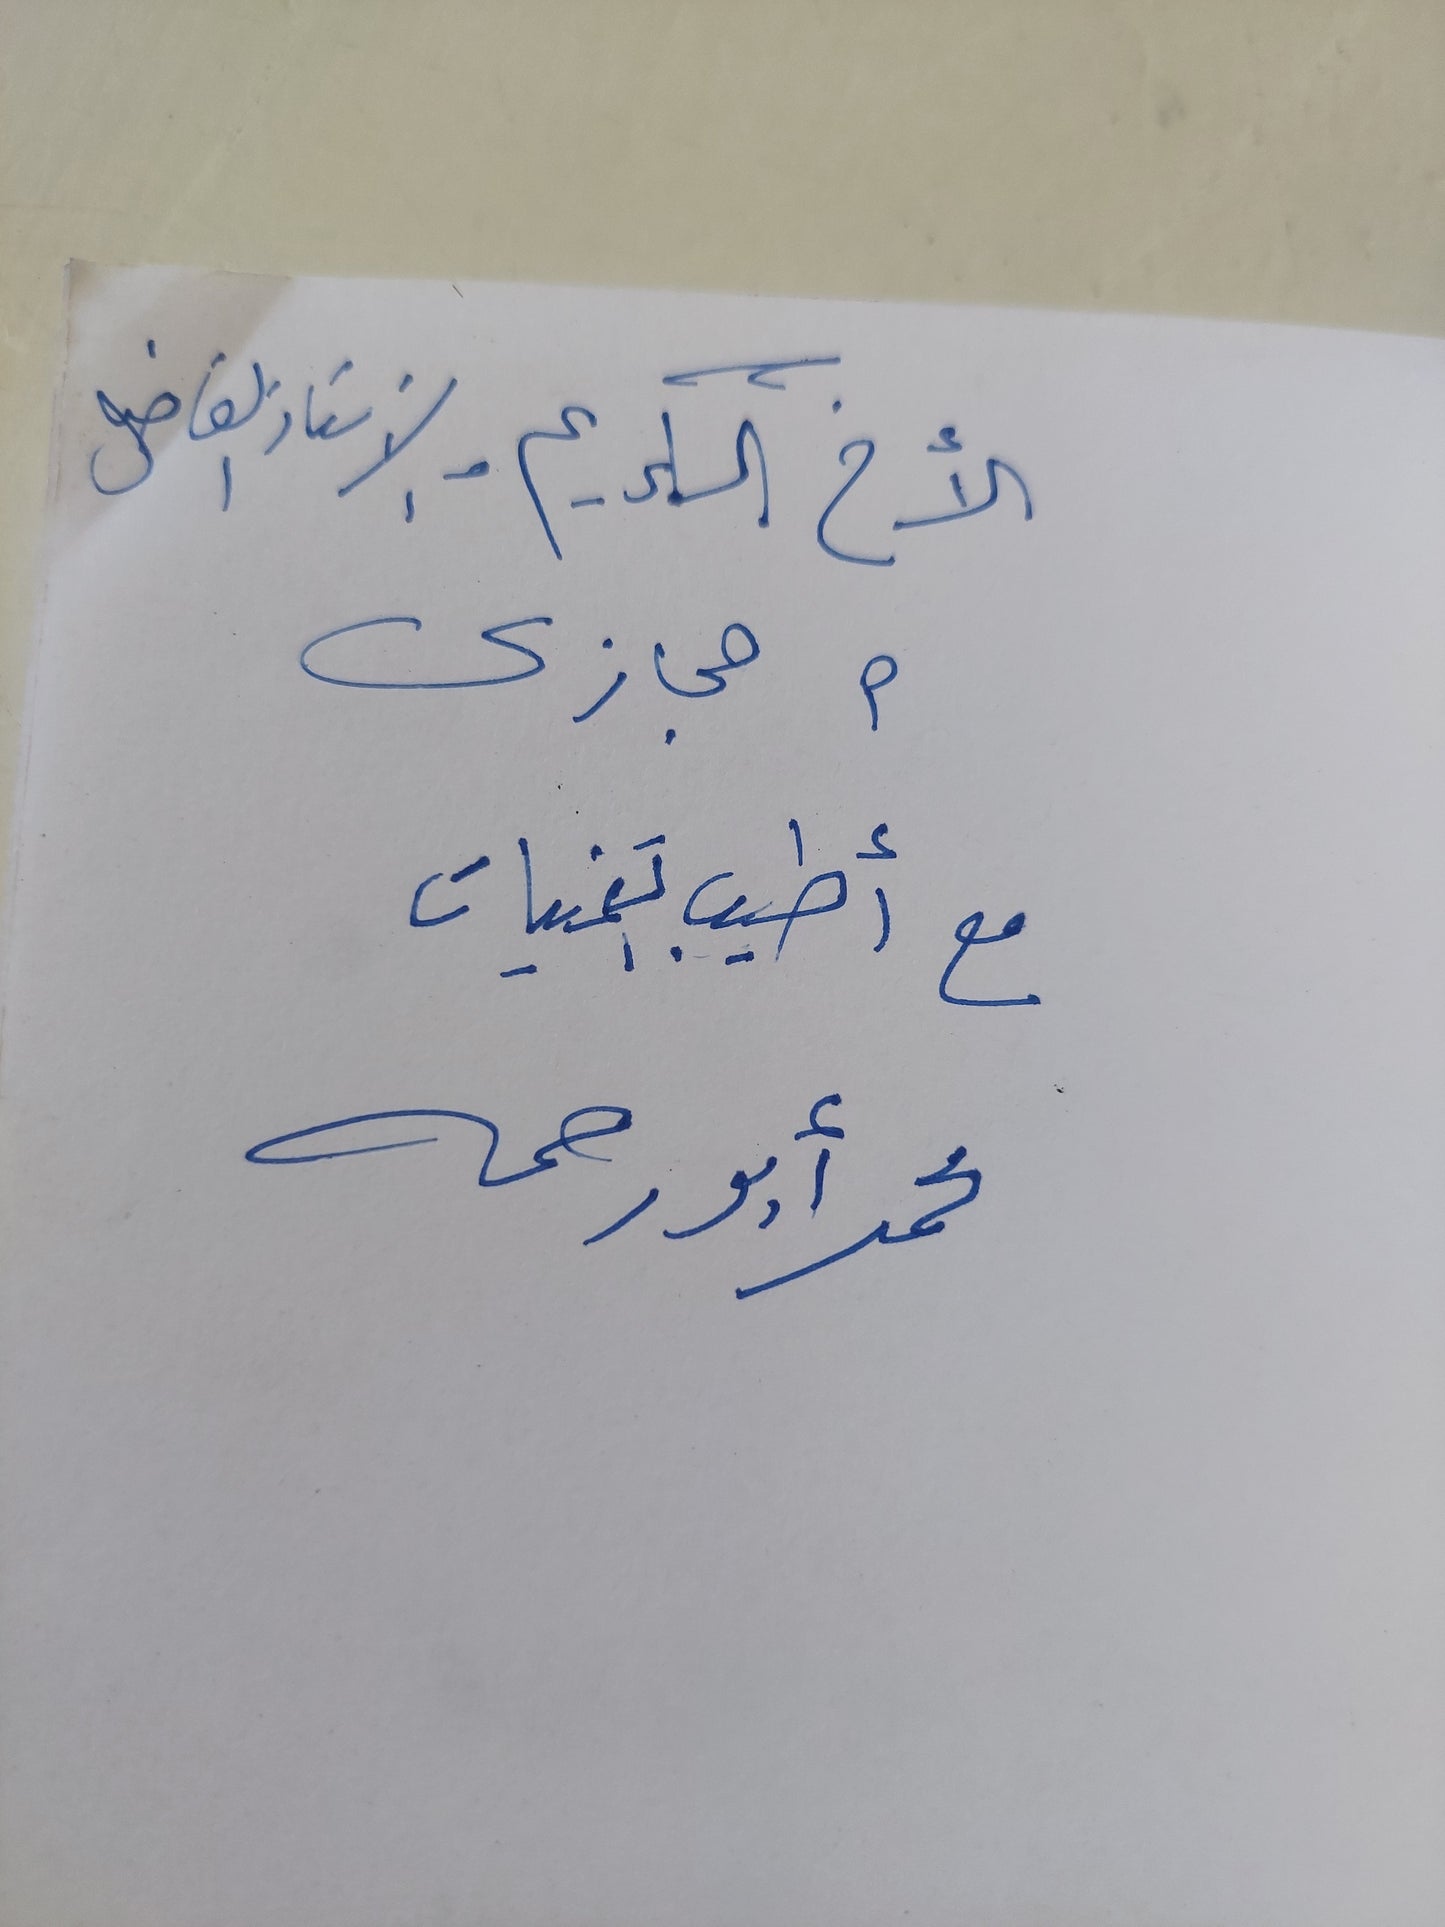 الأخ الكريم - الأستاذ الفاضل
م حجازى
مع أطيب تمنيات
محمد أبو رحمه